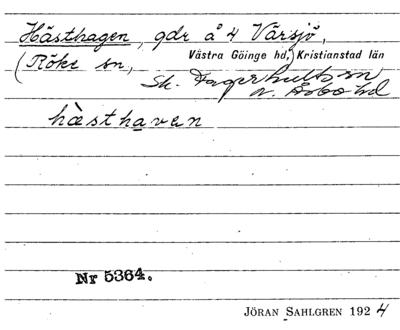 Hästhagen, gdr å 4 Värsjö,
(Röke sn, Västra Göinge hd, Kristianstad län
Sk. Fagerhults sn
N. Åsbo hd
hästhaven
Nr 5364.
JÖRAN SAHLGREN 1924